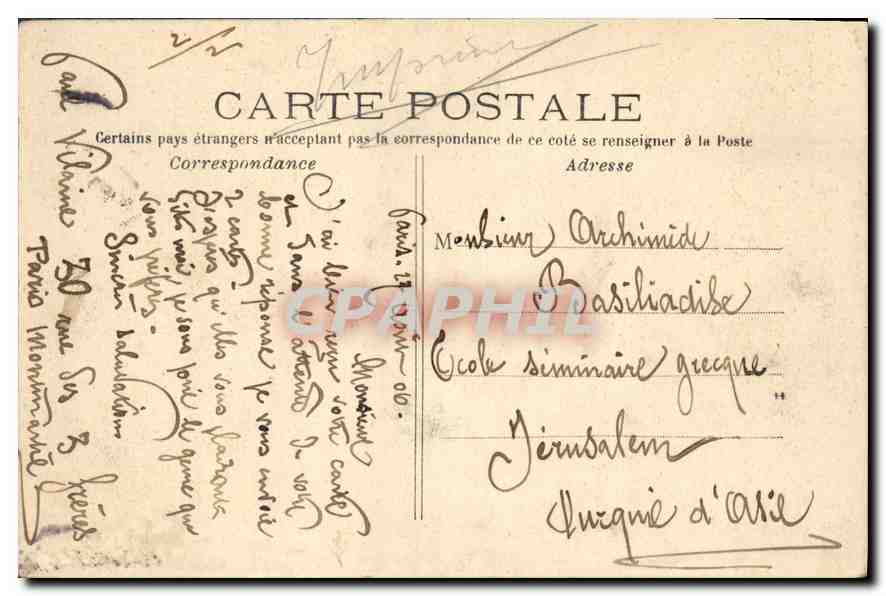 2/2
Imprimé
CARTE POSTALE
Certains pays étrangers n'acceptant pas la correspondance de ce coté se renseigner à la Poste
Correspondance
Adresse
Paris. 22 06.
Monsieur
J'ai bien reçu votre carte
et dans l'attente de votre
bonne réponse je vous envoie
2 cartes.
J'espère qu'elles vous plairont
dites moi je vous prie le genre que
vous préférez.
Sincères salutations
Paul Vilaine 30 rue des 3 frères
Paris Montmartre
Monsieur Archimide
Basiliadise
École séminaire grecque
Jérusalem
Turquie d'Asie
GPAPHIL